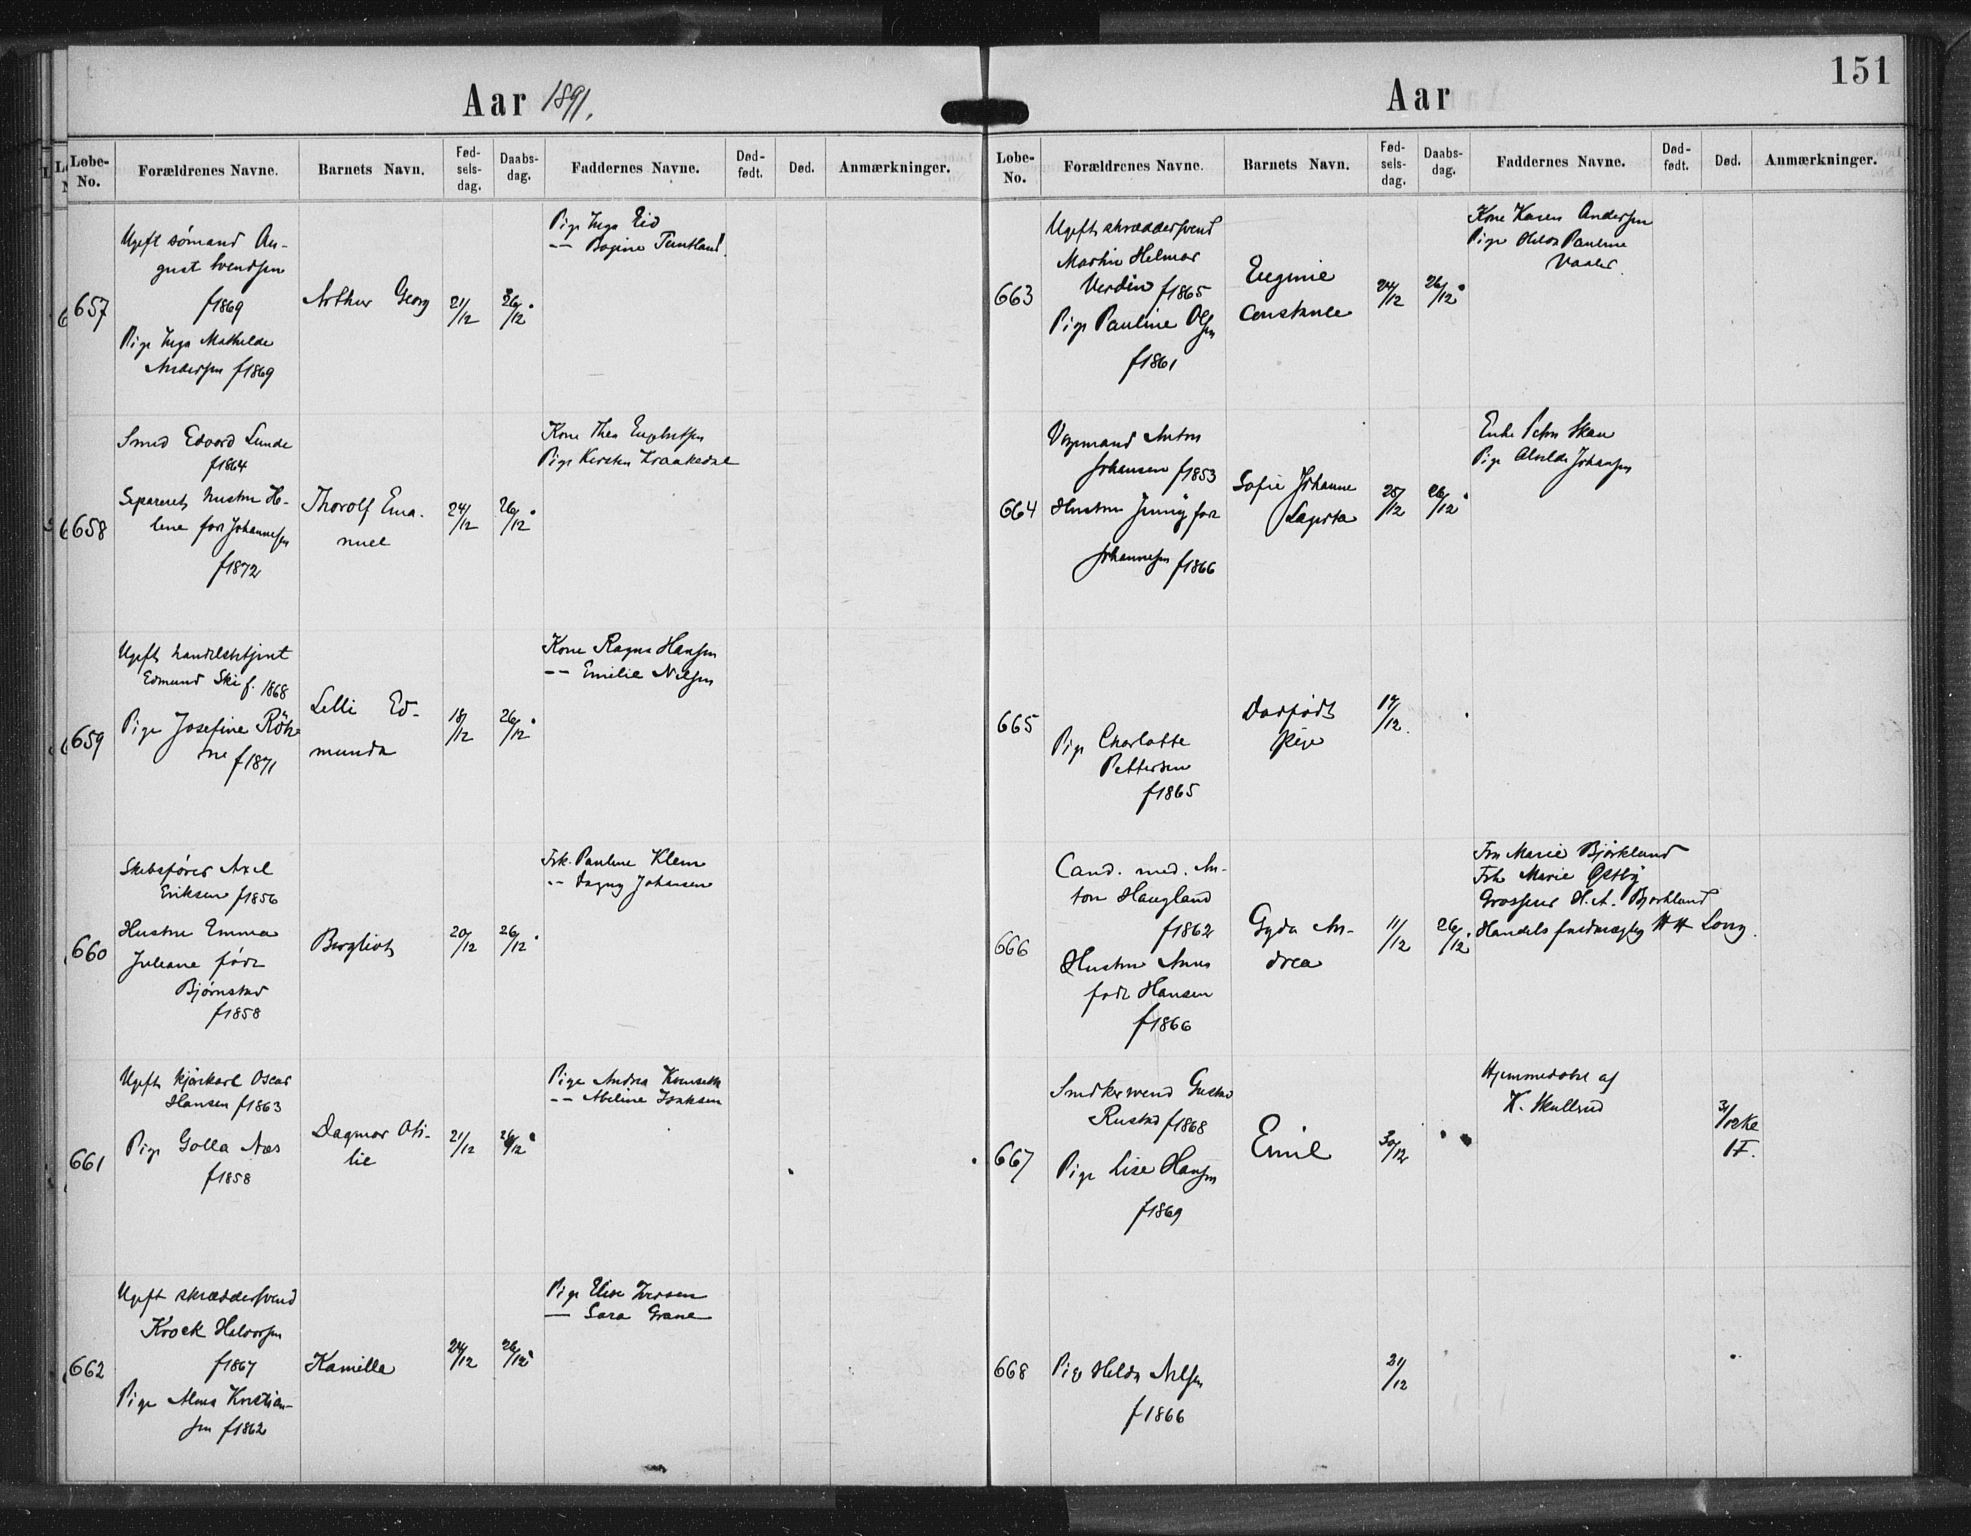 Aar 1891.
Løbe-No. Forældrenes Navne. Barnets Navn. Fød-sels-dag. Daabs-dag. Faddernes Navne. Død-født. Død. Anmærkninger.
657
Ugift sømand Au-
gust Svendsen
f 1869
Pige Inga Mathilde
Andersen f 1869
Arthur Georg
21/12
26/12
Pige Inga Eid
-- Bogine
658
Smed Edvard Lunde
f 1864
Separeret hustru He-
lene født Johannesen
f 1872
Thorolf Ema-
nuel
24/12
26/12
Kone Thea Engebretsen
Pige Kirsten Kraakedal
659
Ugift handelsbetjent
Edmund Ski f. 1868
Pige Josefine
ne f 1871
Lilli Ed-
munda
18/12
26/12
Kone Ragna Hansen
-- Emilie Nilsen
660
Skibsfører Axel
Eriksen f 1856
Hustru Emma
Juliane født
Bjørnstad
f 1858
Bergliot
20/12
26/12
Frk. Pauline Klem
-- Dagny Johansen
661
Ugift kjørekarl Oscar
Hansen f 1863
Pige Golla Næs
f 1858
Dagmar Oti-
lie
21/12
26/12
Pige Andrea
-- Abeline Isaksen
662
Ugift skræddersvend
Halvorsen
f 1867
Pige Alma Kristian-
sen f 1862
Kamilla
24/12
26/12
Pige Elise Iversen
— Sara Grane
Aar
151
Løbe-No. Forældrenes Navne. Barnets Navn. Fød-sels-dag. Daabs-dag. Faddernes Navne. Død-født. Død. Anmærkninger.
663
Ugift skræddersvend
Martin Helmar
Verdin f 1865
Pige Pauline Olsen
f 1861
Eugenie
Constance
24/12
26/12
Kone Karen Andersen
Pige Hilda Pauline
Vaaler.
664
Vognmand Anton
Johansen f 1853
Hustru Jenny født
Johannesen f 1866
Sofie Johanne
25/12
26/12
Enke Petra Skau
Pige Alvilde Johansen
665
Pige Charlotte
Pettersen
f 1865
Dødfødt
pige
17/12.
666
Cand. med. An-
ton Haugland
f 1862
Hustru Anna
født Hansen
f 1866
Gyda An-
drea
11/12
26/12
Fru Marie Bjørklund
Frk Marie Østby
Grosserer H. A. Bjørklund
Handelsfuldmægtig Long.
667
Smedsvend Gustav
Rustad f 1868
Pige Lise Hansen
f 1869
Emil
30/12
Hjemmedøbt af
K. Skullerud
31/12 kl
668
Pige Hilda Nilsen
f 1866
31/12